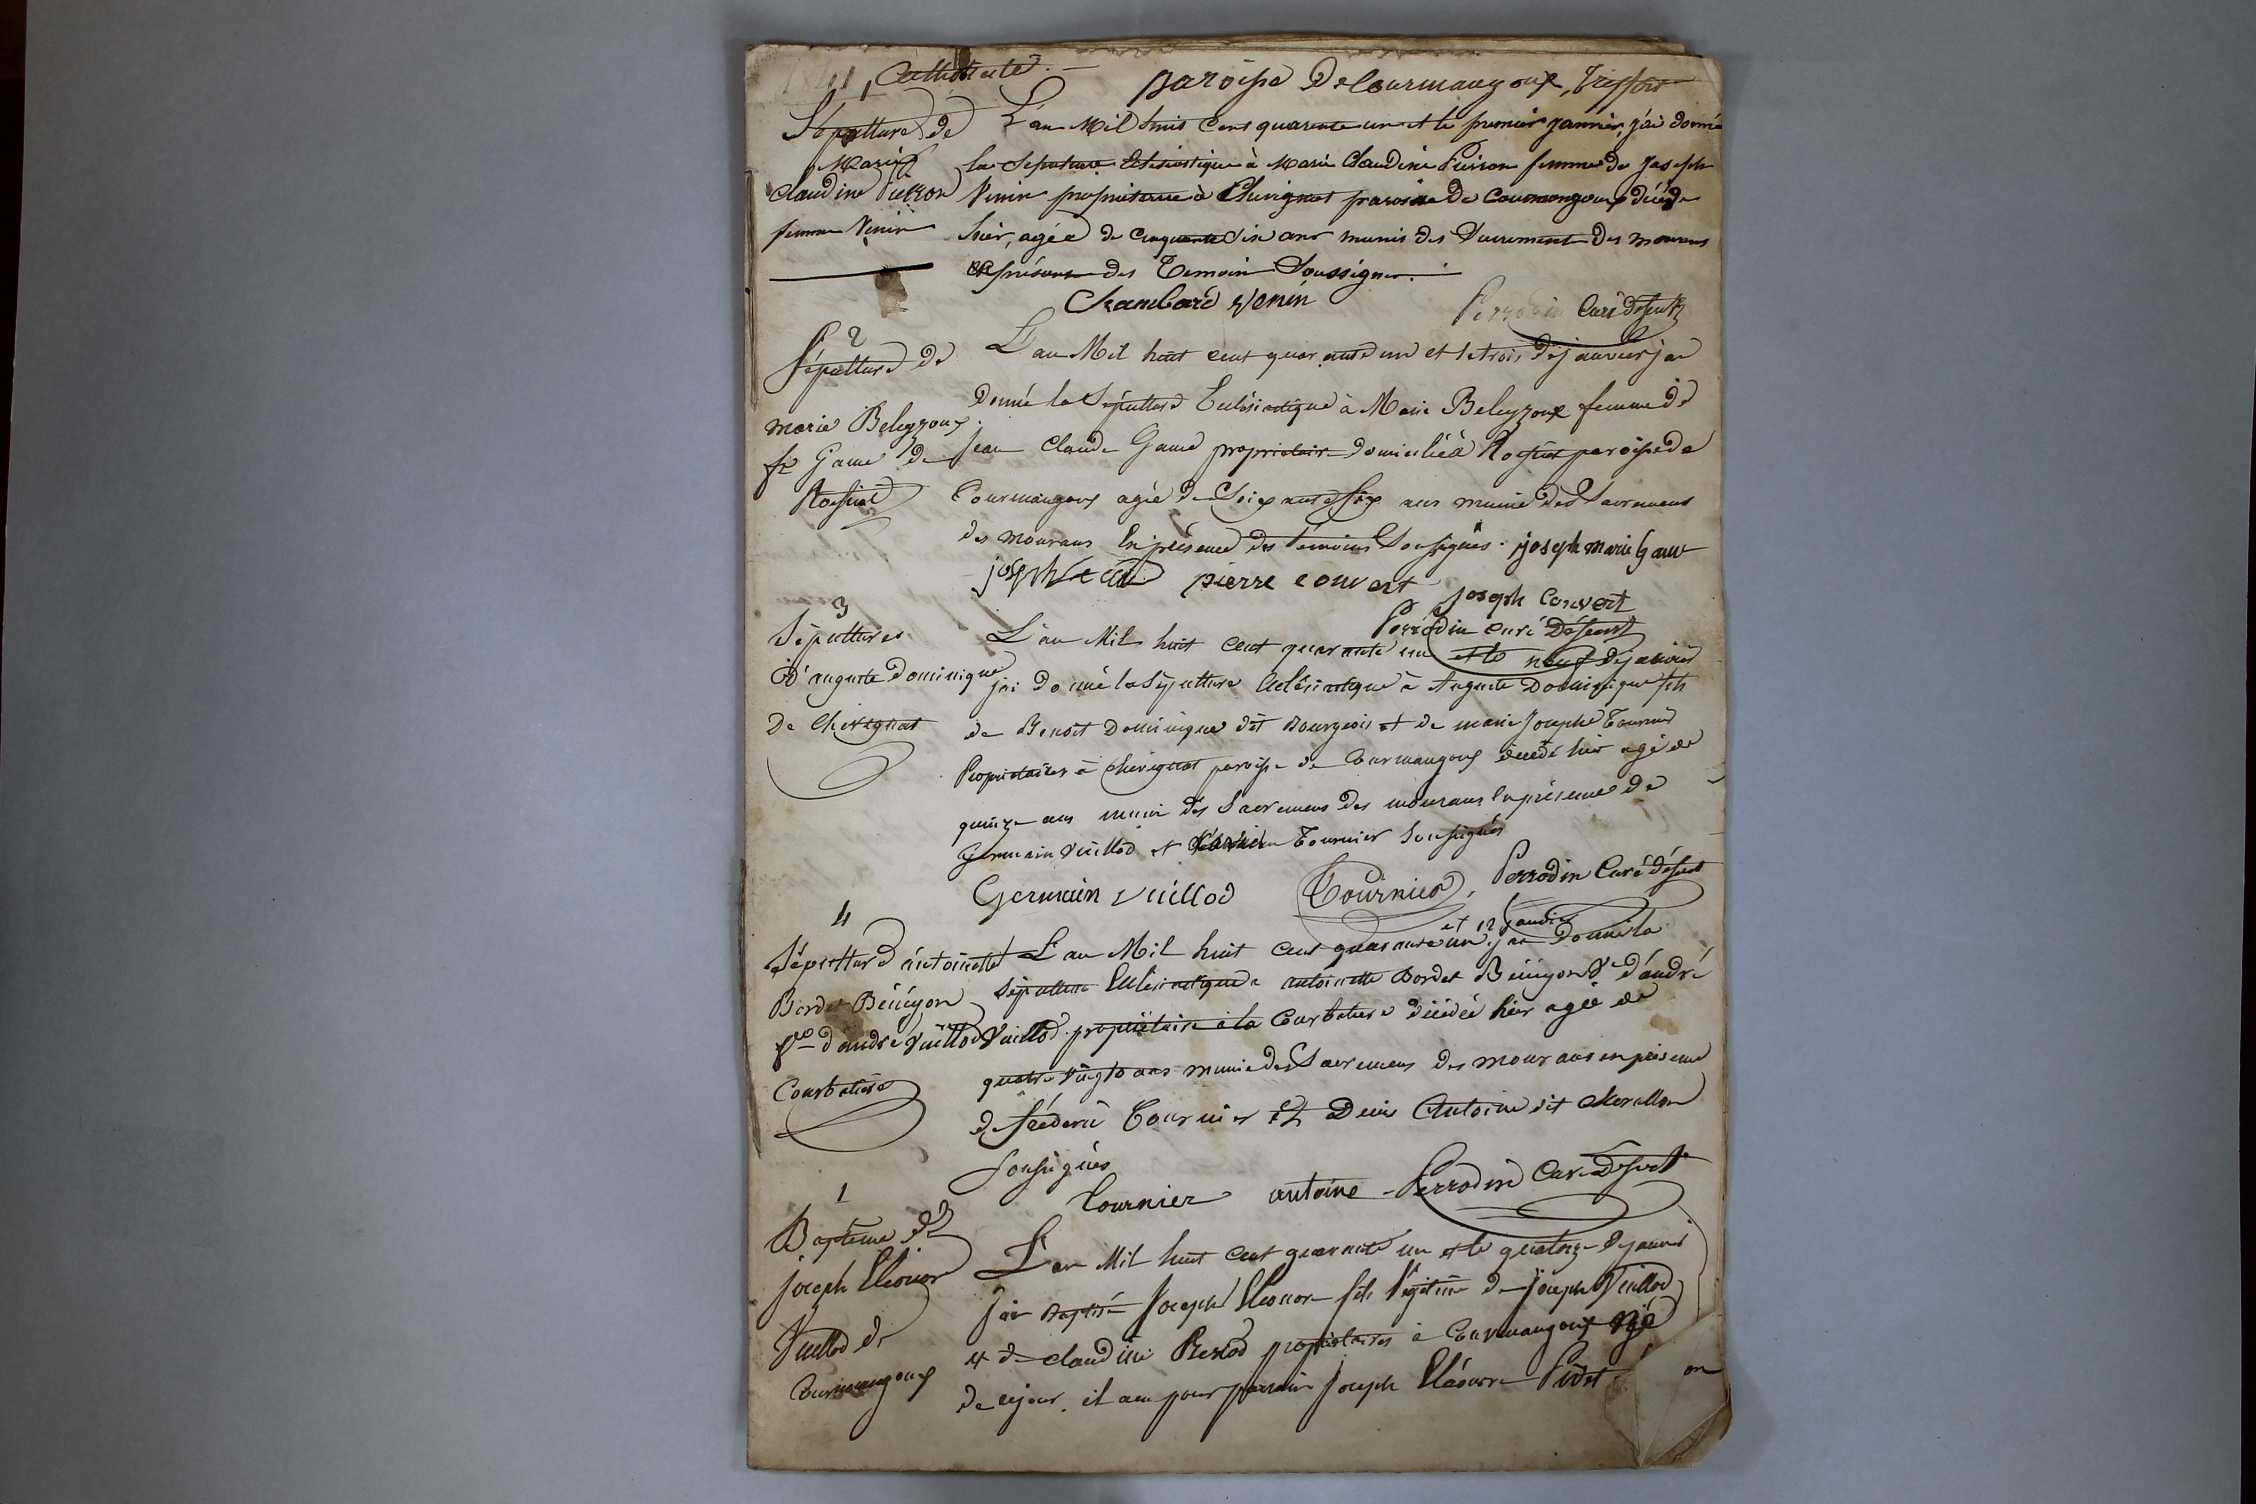 1841, Catholicité.
paroisse De Courmangoux, Treffort
1
Sépulture de
Marie
Claudine Puvion
femme Venin
L'an Mil huit Cent quarente un et le premier janvier, j'ai donné
la Sépulture Eclésiastique à Marie Claudine femme de Joseph
Venin propriétaire à Chevignat paroisse De Courmongoux décédé
hier, agée de Cinquante Six ans munis des Sacrement des mourans
en présence des Temoin Soussigner.
Chambard Venin
Perrodin Curé Desservt
2
Sépulture de
marie Beleyzoux
fe Game de
Roissiat
L'an Mil huit cent quarante un et le trois De janvier jai
Donné la Sépulture Ecclésiastique à Marie Beleyzoux femme de
Jean Claude Game propriétaire domicilié à Roissiat paroisse de
Courmangoux agée de Soixante Six ans munie des Sacremens
des mourans En présence des témoins Soussignés. joseph marie Game
joseph pierre convert
joseph Convert
Perrodin curé Desservt
3
Sépulture
D'auguste Dominique
De Chevignat
L'an Mil huit cent quarante un et le neuf De janvier
j'ai donné la Sépulture eclésiastique à Auguste Dominique fils
de Benoit Dominique dit Bourgeois et de marie Josephe Tournier
Propriétaires à Chevignat paroisse de Courmangoux décédé hier agé de
quinze ans muni des Sacremens des mourans En présence de
Germain Vuillod et Tournier Soussignés
Germain vuillod Tournier, Perrodin Curé désservt
4
Sépulture antoinette
Bordet Béneyon
Vve d'andré Vuillod
Courbatiere
et 12 janvier
L'an Mil huit cent quarante un j'ai Donné la
Sépulture Eclésiastique a antoinette Bordet Béneyon Ve d'andré
Vuillod propriétaire à la Courbatiere décédée hier agée de
quatre vingts ans munie des Sacremens des mourans en présence
de fréderic Tournier Et Denis Antoine dit
Soussignés
Tournier antoine Perrodin Curé Desservt
1
Baptême de
joseph Eléonor
Vuillod de
Courmangoux
L'an Mil huit cent quarante un et le quatorze De janvier
j'ai Baptisé Joseph Eléonore fils légitime de Joseph Vuillod
et de claudine propriétaires à Courmangoux né
de ce jour. il a eu pour parrain Joseph Eléonore Pidet